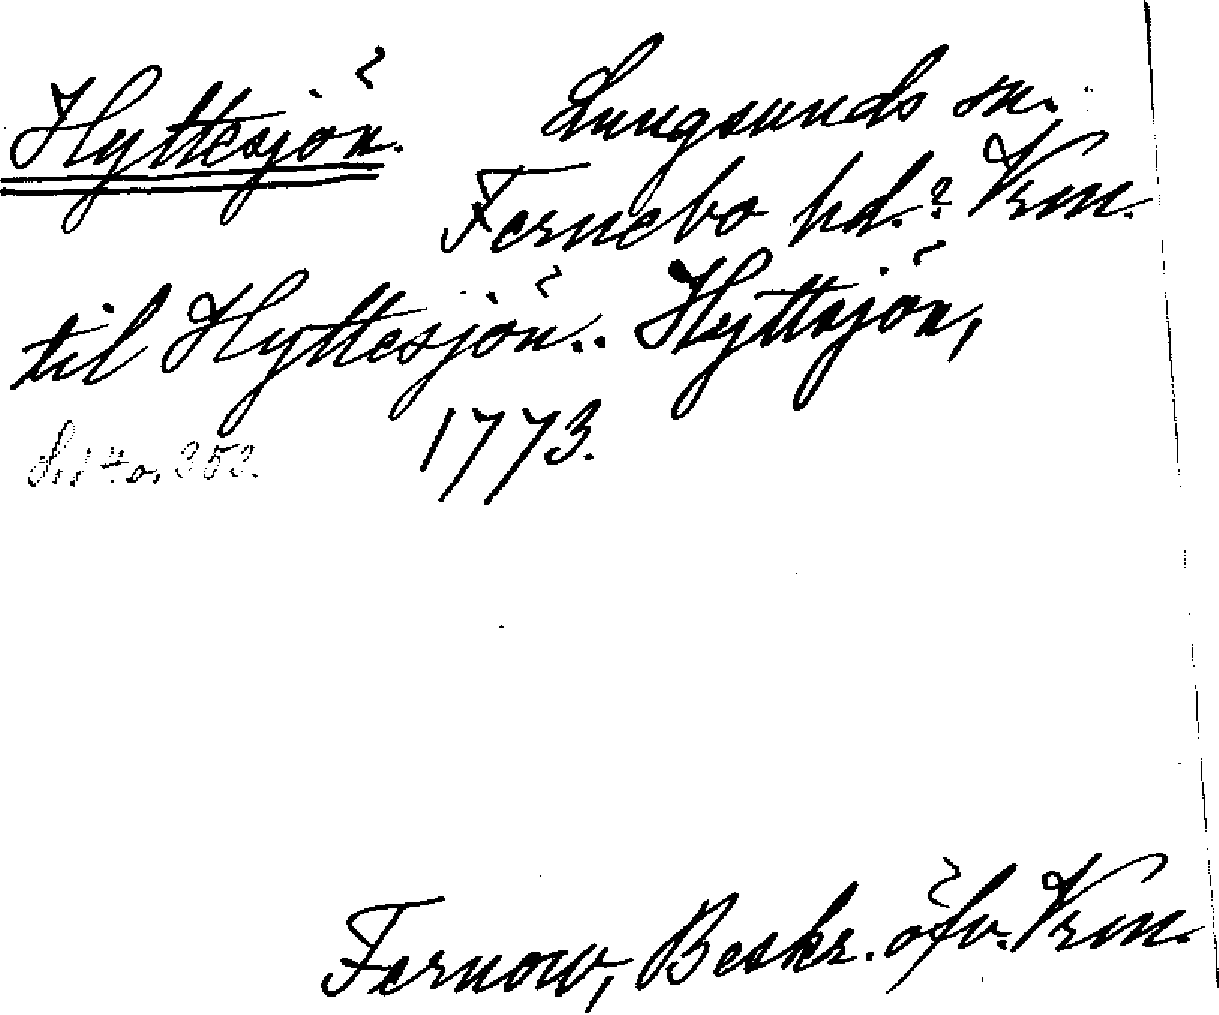 Hyttesjön. Lungsunds sn.
Fernebo hd.? Vrm.
til Hyttesjön.. Hyttsjön,
1773.
Fernow, Beskr. öfv. Vrm.